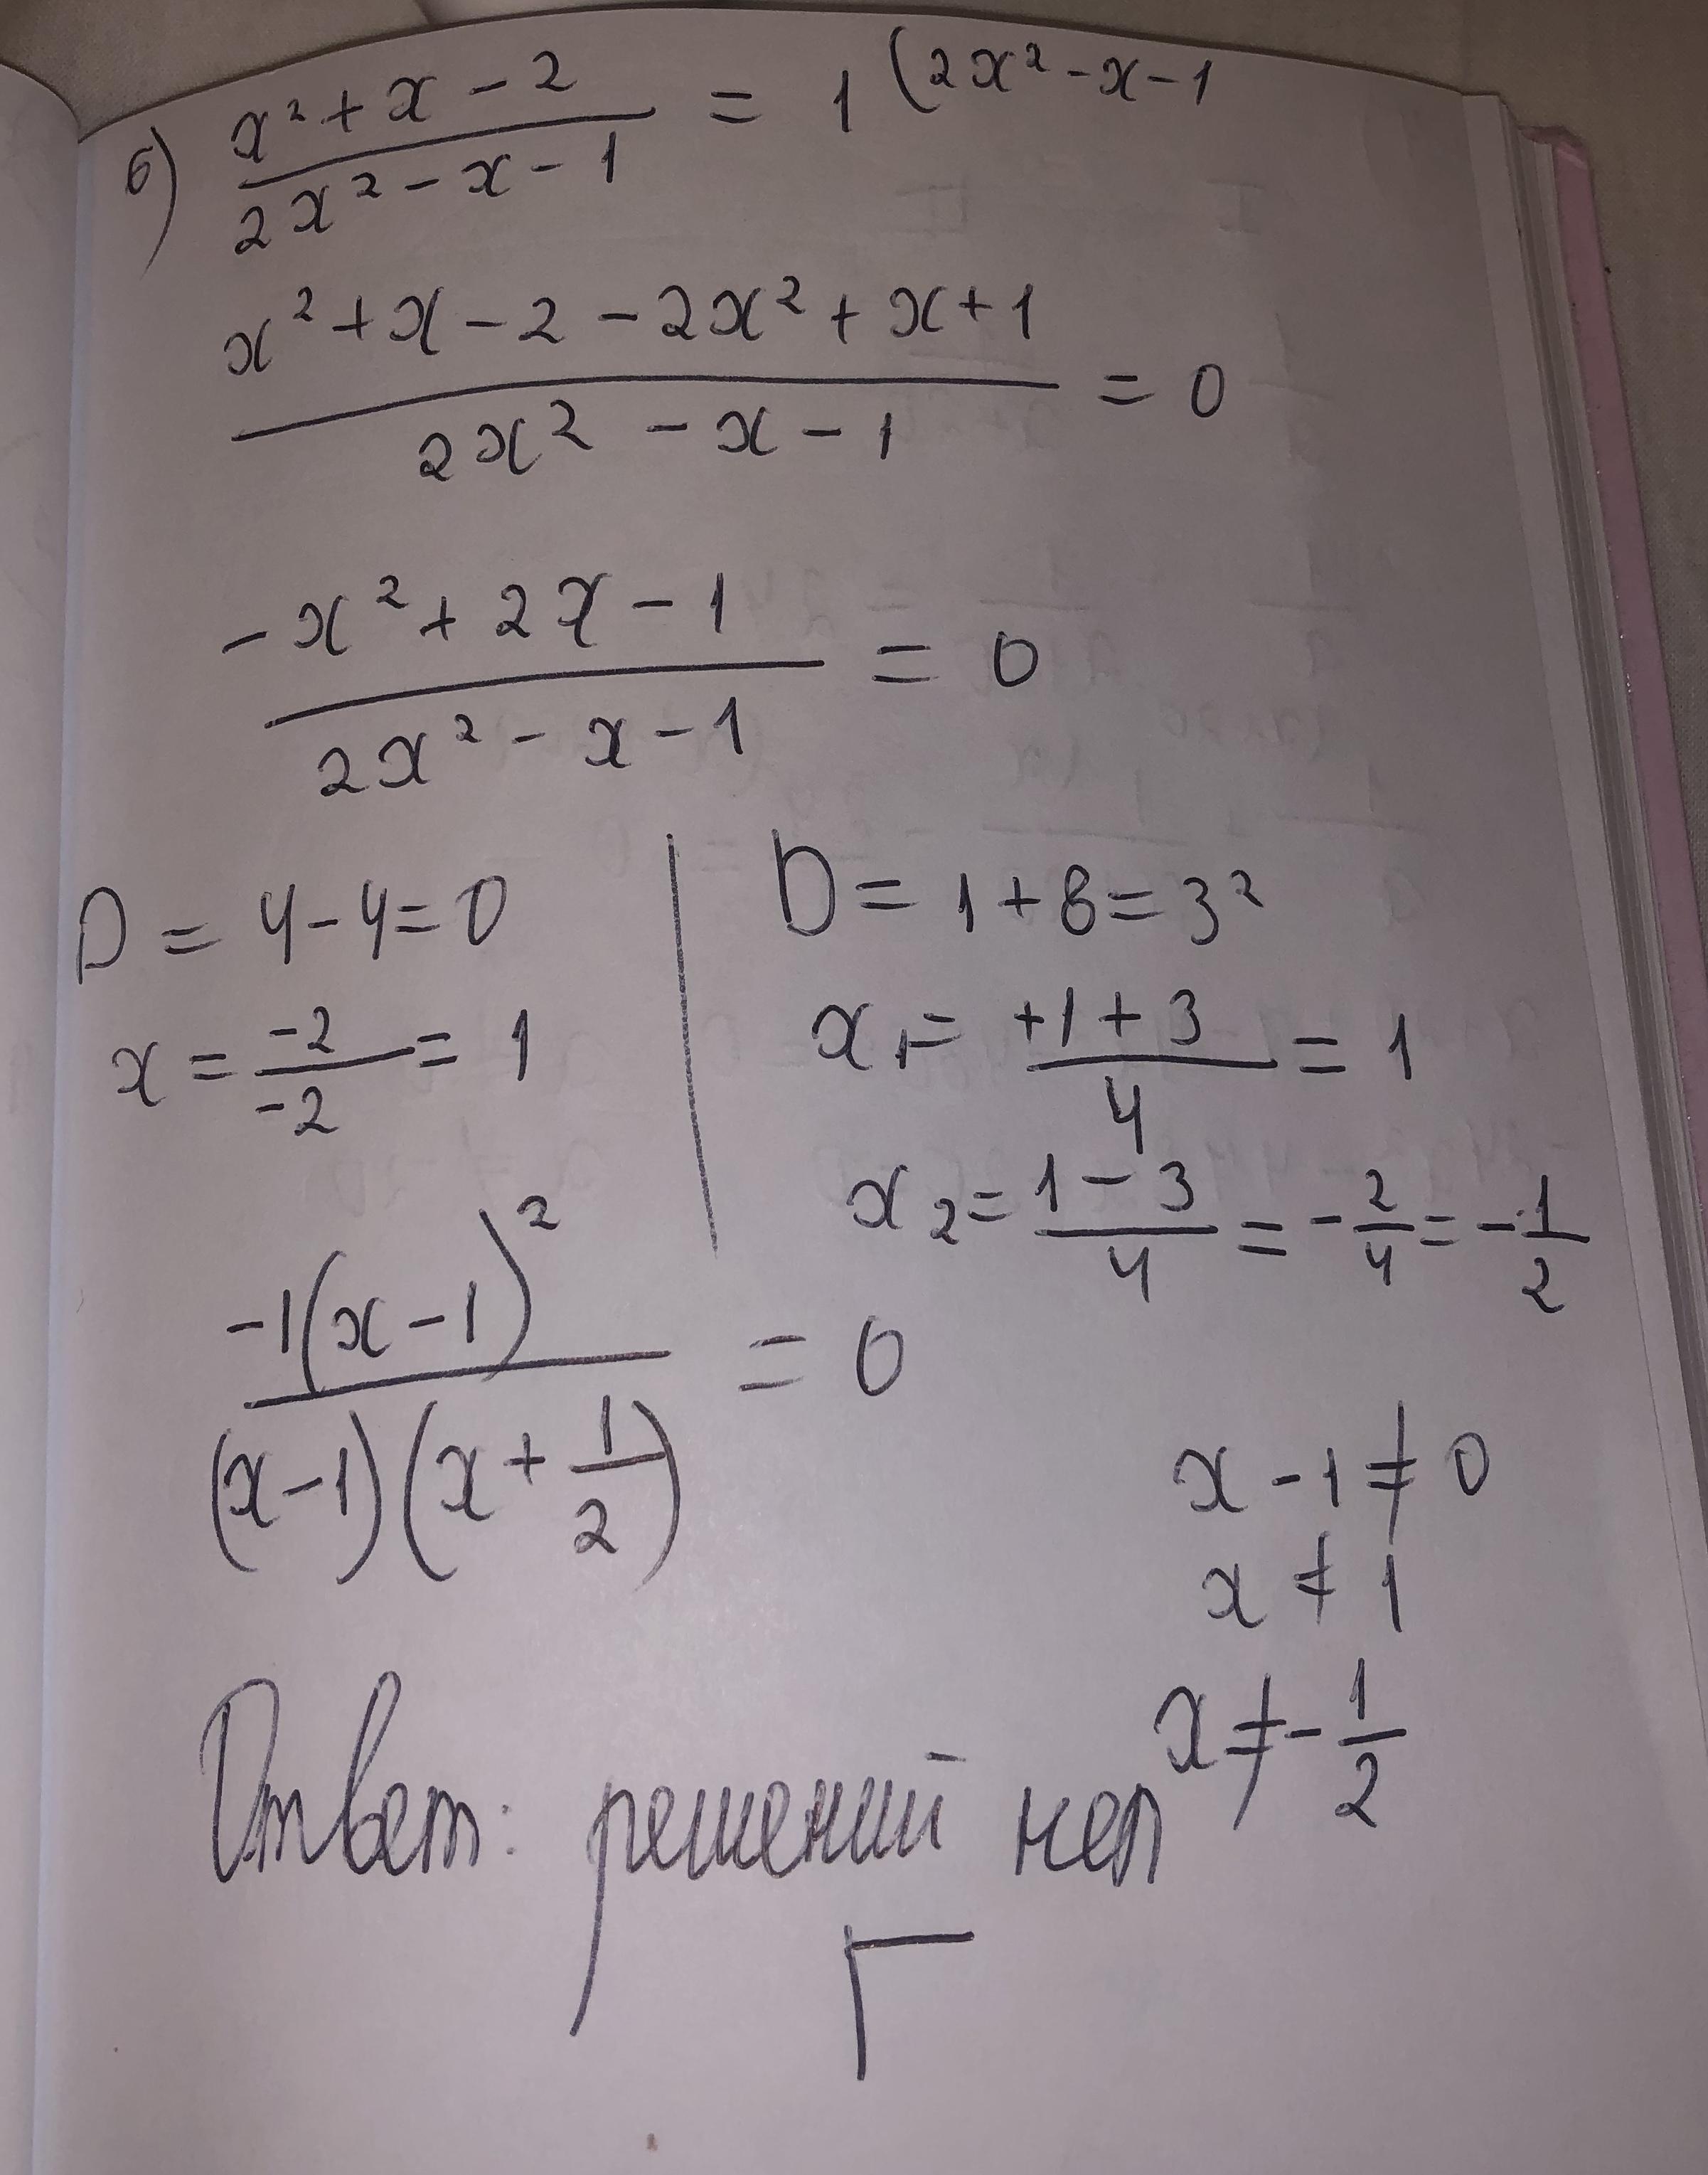 б) (x² + x - 2)/(2x² - x - 1) = 1 (2x² - x - 1
(x² + x - 2 - 2x² + x + 1)/(2x² - x - 1) = 0
(-x² + 2x - 1)/(2x² - x - 1) = 0
D = 4 - 4 = 0
x = -2/-2 = 1
D = 1 + 8 = 3²
x₁ = (+1 + 3)/4 = 1
x₂ = (1 - 3)/4 = -2/4 = -1/2
-1(x - 1)²/((x - 1)(x + 1/2)) = 0
x - 1 ≠ 0
x ≠ 1
x ≠ -1/2
Ответ: решений нет
Г